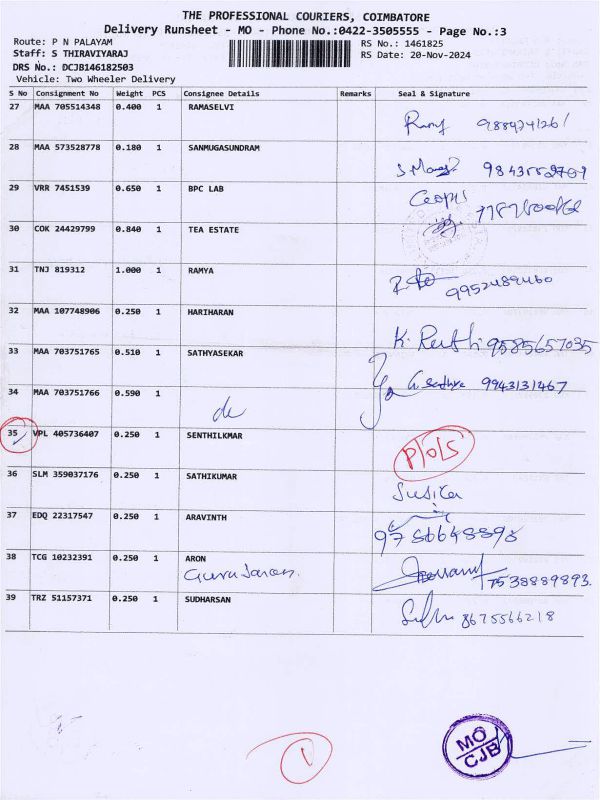 THE PROFESSIONAL COURIERS, COIMBATORE
Delivery Runsheet - MO - Phone No.:0422-3505555 - Page No.:3
Route: P N PALAYAM RS No.: 1461825
Staff: S THIRAVIYARAJ RS Date: 20-Nov-2024
DRS No.: DCJB146182503
Vehicle: Two Wheeler Delivery
S No Consignment No Weight PCS Consignee Details Remarks Seal & Signature
27 MAA 705514348 0.400 1 RAMASELVI
28 MAA 573528778 0.180 1 SANMUGASUNDRAM
29 VRR 7451539 0.650 1 BPC LAB
30 COK 24429799 0.840 1 TEA ESTATE
31 TNJ 819312 1.000 1 RAMYA
9952489460
32 MAA 107748906 0.250 1 HARIHARAN
9585657035
33 MAA 703751765 0.510 1 SATHYASEKAR
G. Sathya 9943131467
34 MAA 703751766 0.590 1
do
35 VPL 405736407 0.250 1 SENTHILKMAR
36 SLM 359037176 0.250 1 SATHIKUMAR
Susila
37 EDQ 22317547 0.250 1 ARAVINTH
38 TCG 10232391 0.250 1 ARON
7538889893.
39 TRZ 51157371 0.250 1 SUDHARSAN
8675566218
1
MO
CJB